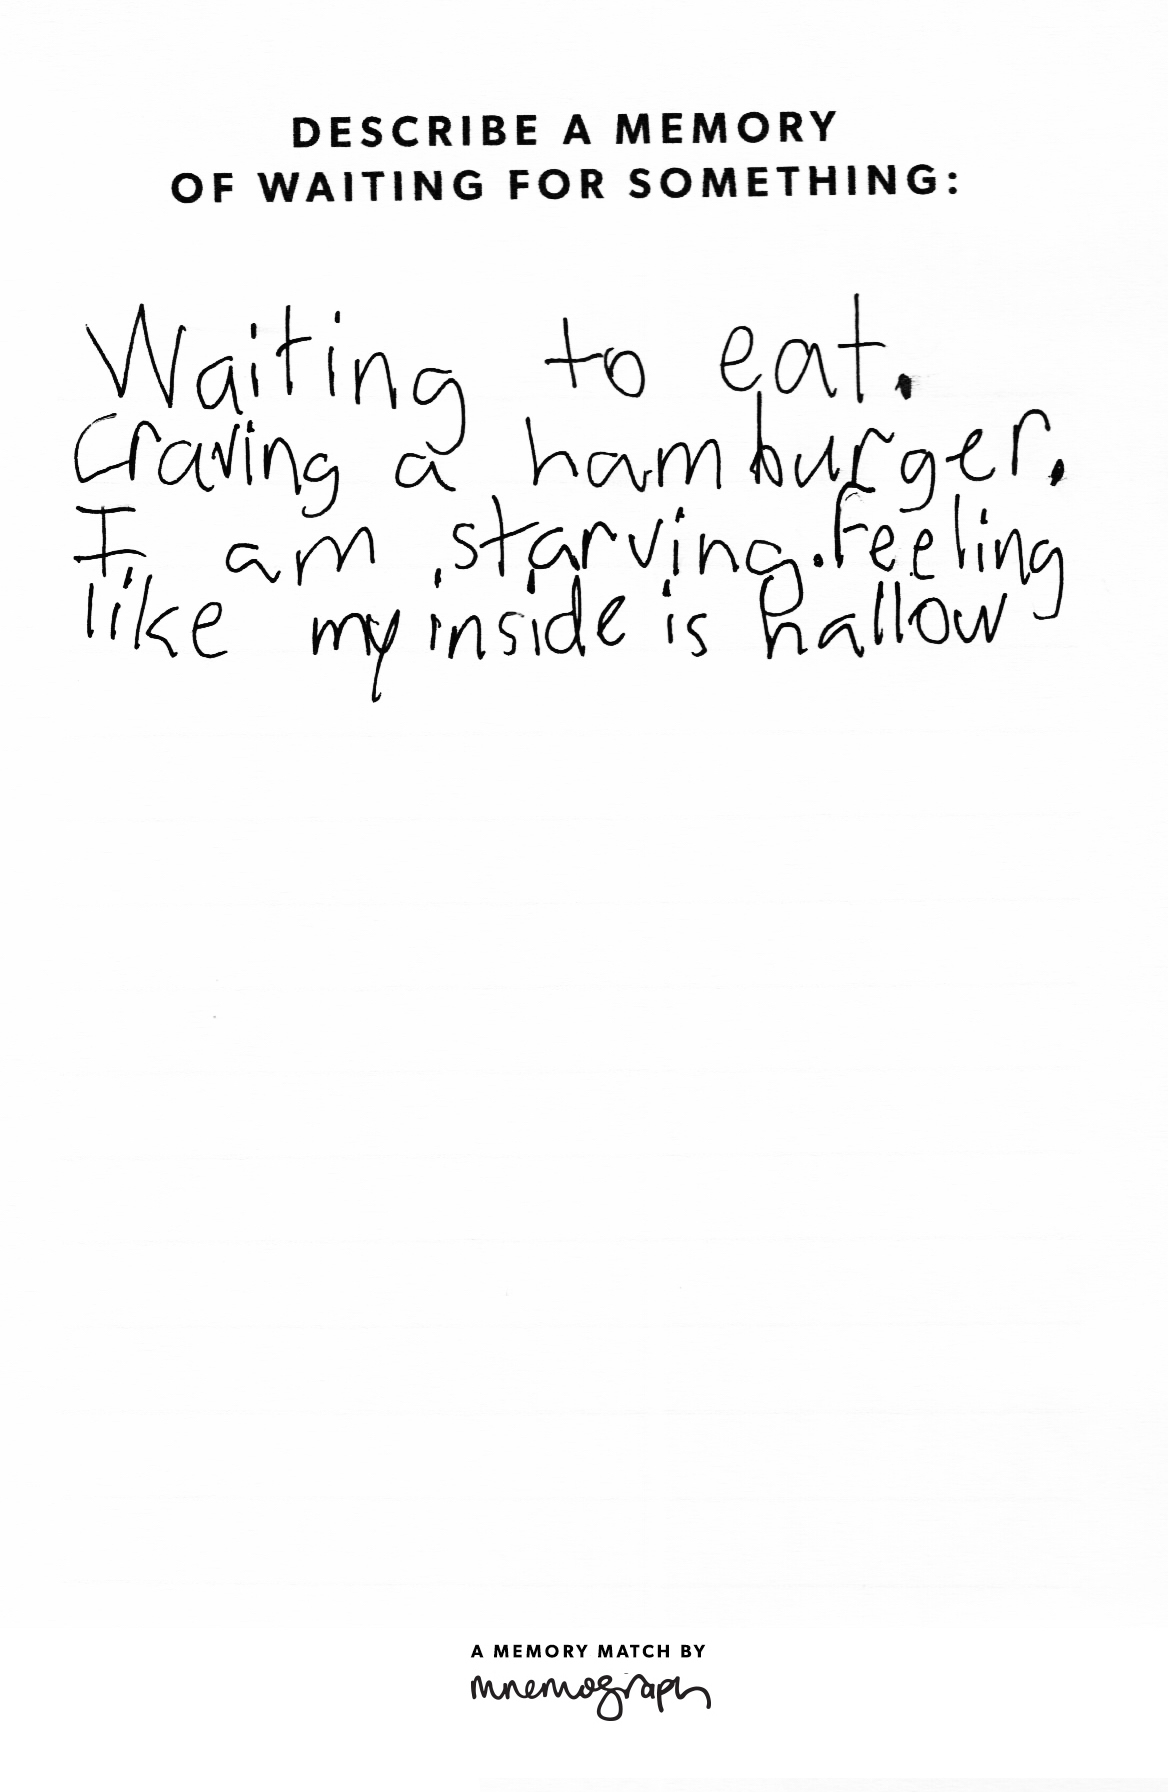 DESCRIBE A MEMORY
OF WAITING FOR SOMETHING:
Waiting to eat.
Craving a hamburger.
I am starving. Feeling
like my inside is hallow
A MEMORY MATCH BY
mnemograph